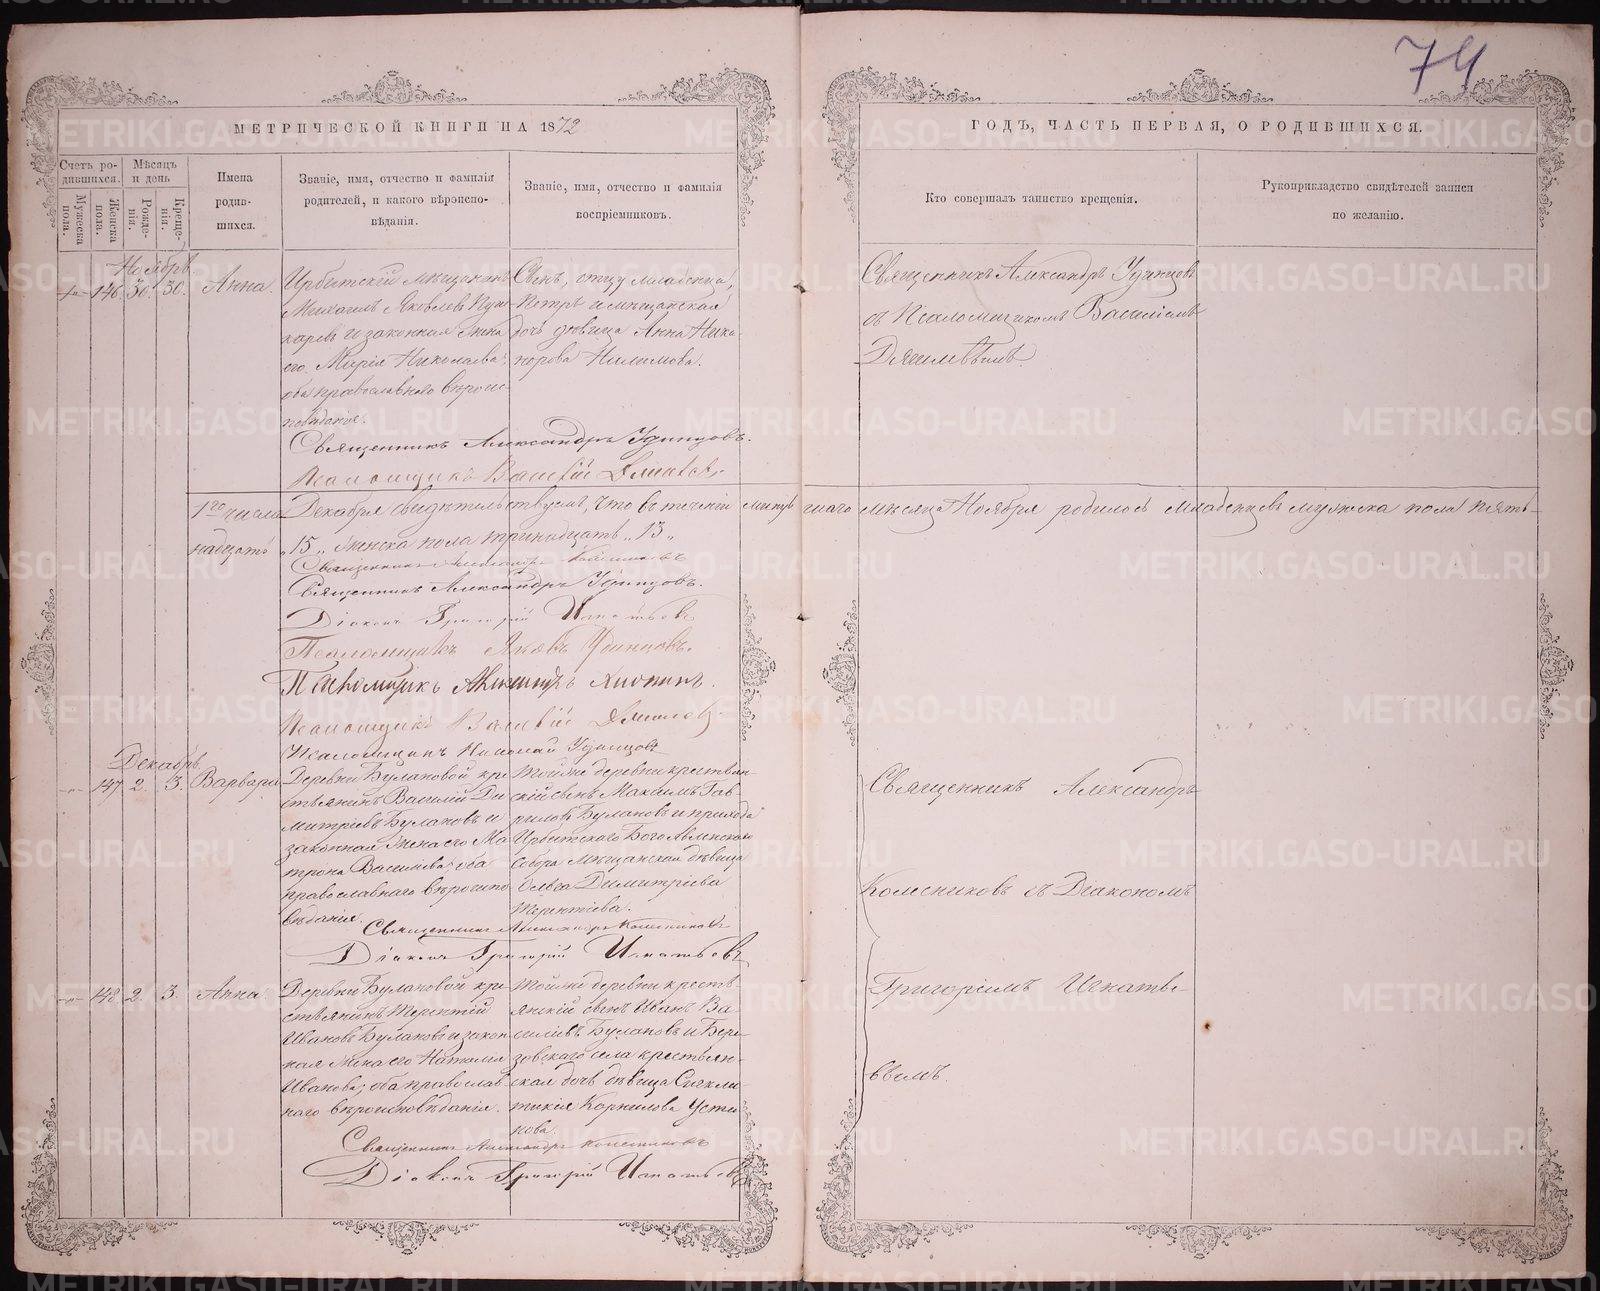 74
МЕТРИЧЕСКОЙ КНИГИ НА 1872
ГОДЪ, ЧАСТЬ ПЕРВАЯ, О РОДИВШИХСЯ.
Счетъ ро-
дившихся.
Мужеска
пола.
Женска
пола.
Мѣсяцъ
и день
Рожде-
нія.
Креще-
нія.
Имена
родив-
шихся.
Званіе, имя, отчество и фамилія
родителей, и какого вѣроиспо-
вѣданія.
Званіе, имя, отчество и фамилія
воспріемниковъ.
Кто совершалъ таинство крещенія.
Рукоприкладство свидѣтелей записи
по желанію.
Ноябрь
146. 30. 30. Анна.
Ирбитскій мѣщанинъ
Михаилъ Яковлевъ
и законная жена
его Марія Николаева
оба православнаго вѣроис-
повѣданія.
Сынъ, отцу младенца,
Петръ и мѣщанская
дочь дѣвица Анна Ника-
норова
Священникъ Александръ Удинцовъ
съ Псаломщикомъ Василіемъ
Священникъ Александръ Удинцовъ.
Псаломщикъ Василій
1го числа Декабря свидѣтельствуемъ, что въ теченіи минувшаго мѣсяца Ноября родилось младенцевъ мужеска пола пять-
надцать „15„ женска пола тринадцать „13„
Священникъ Александръ Колесниковъ
Священникъ Александръ Удинцовъ.
Діаконъ Григорій Игнатьевъ
Псаломщикъ Яковъ Удинцовъ.
Псаломщикъ
Псаломщикъ Василій
Псаломщикъ Николай Удинцовъ
Декабрь.
147. 2. 3. Варвара
Деревни Булановой кре
стьянинъ Василій Ди
митріевъ Булановъ и
законная жена его Ма
трона Васильева оба
православнаго вѣроиспо
вѣданія.
Той же деревни крестьян-
скій сынъ Максимъ Гав-
риловъ Булановъ и прихода
Ирбитскаго Богоявленскаго
Собора мѣщанская дѣвица
Ольга Димитріева
Терентіева.
Священникъ Александръ Колесниковъ
Діаконъ Григорій Игнатьевъ
148. 2. 3. Анна.
Деревни Булановой кре
стьянинъ Терентій
Ивановъ Булановъ и закон
ная жена его Наталія
Иванова; оба православ
наго вѣроисповѣданія.
Той же деревни кресть-
янскій сынъ Иванъ Ва
сильевъ Булановъ и Бер-
зовскаго села крестьян-
ская дочь дѣвица Синкли-
тикія Корнилова Усти
нова.
Священникъ Александръ
Колесниковъ съ Діакономъ
Григоріемъ Игнатье-
вымъ.
Священникъ Александръ Колесниковъ
Діаконъ Григорій Игнатьевъ
METRIKI.GASO-URAL.RU